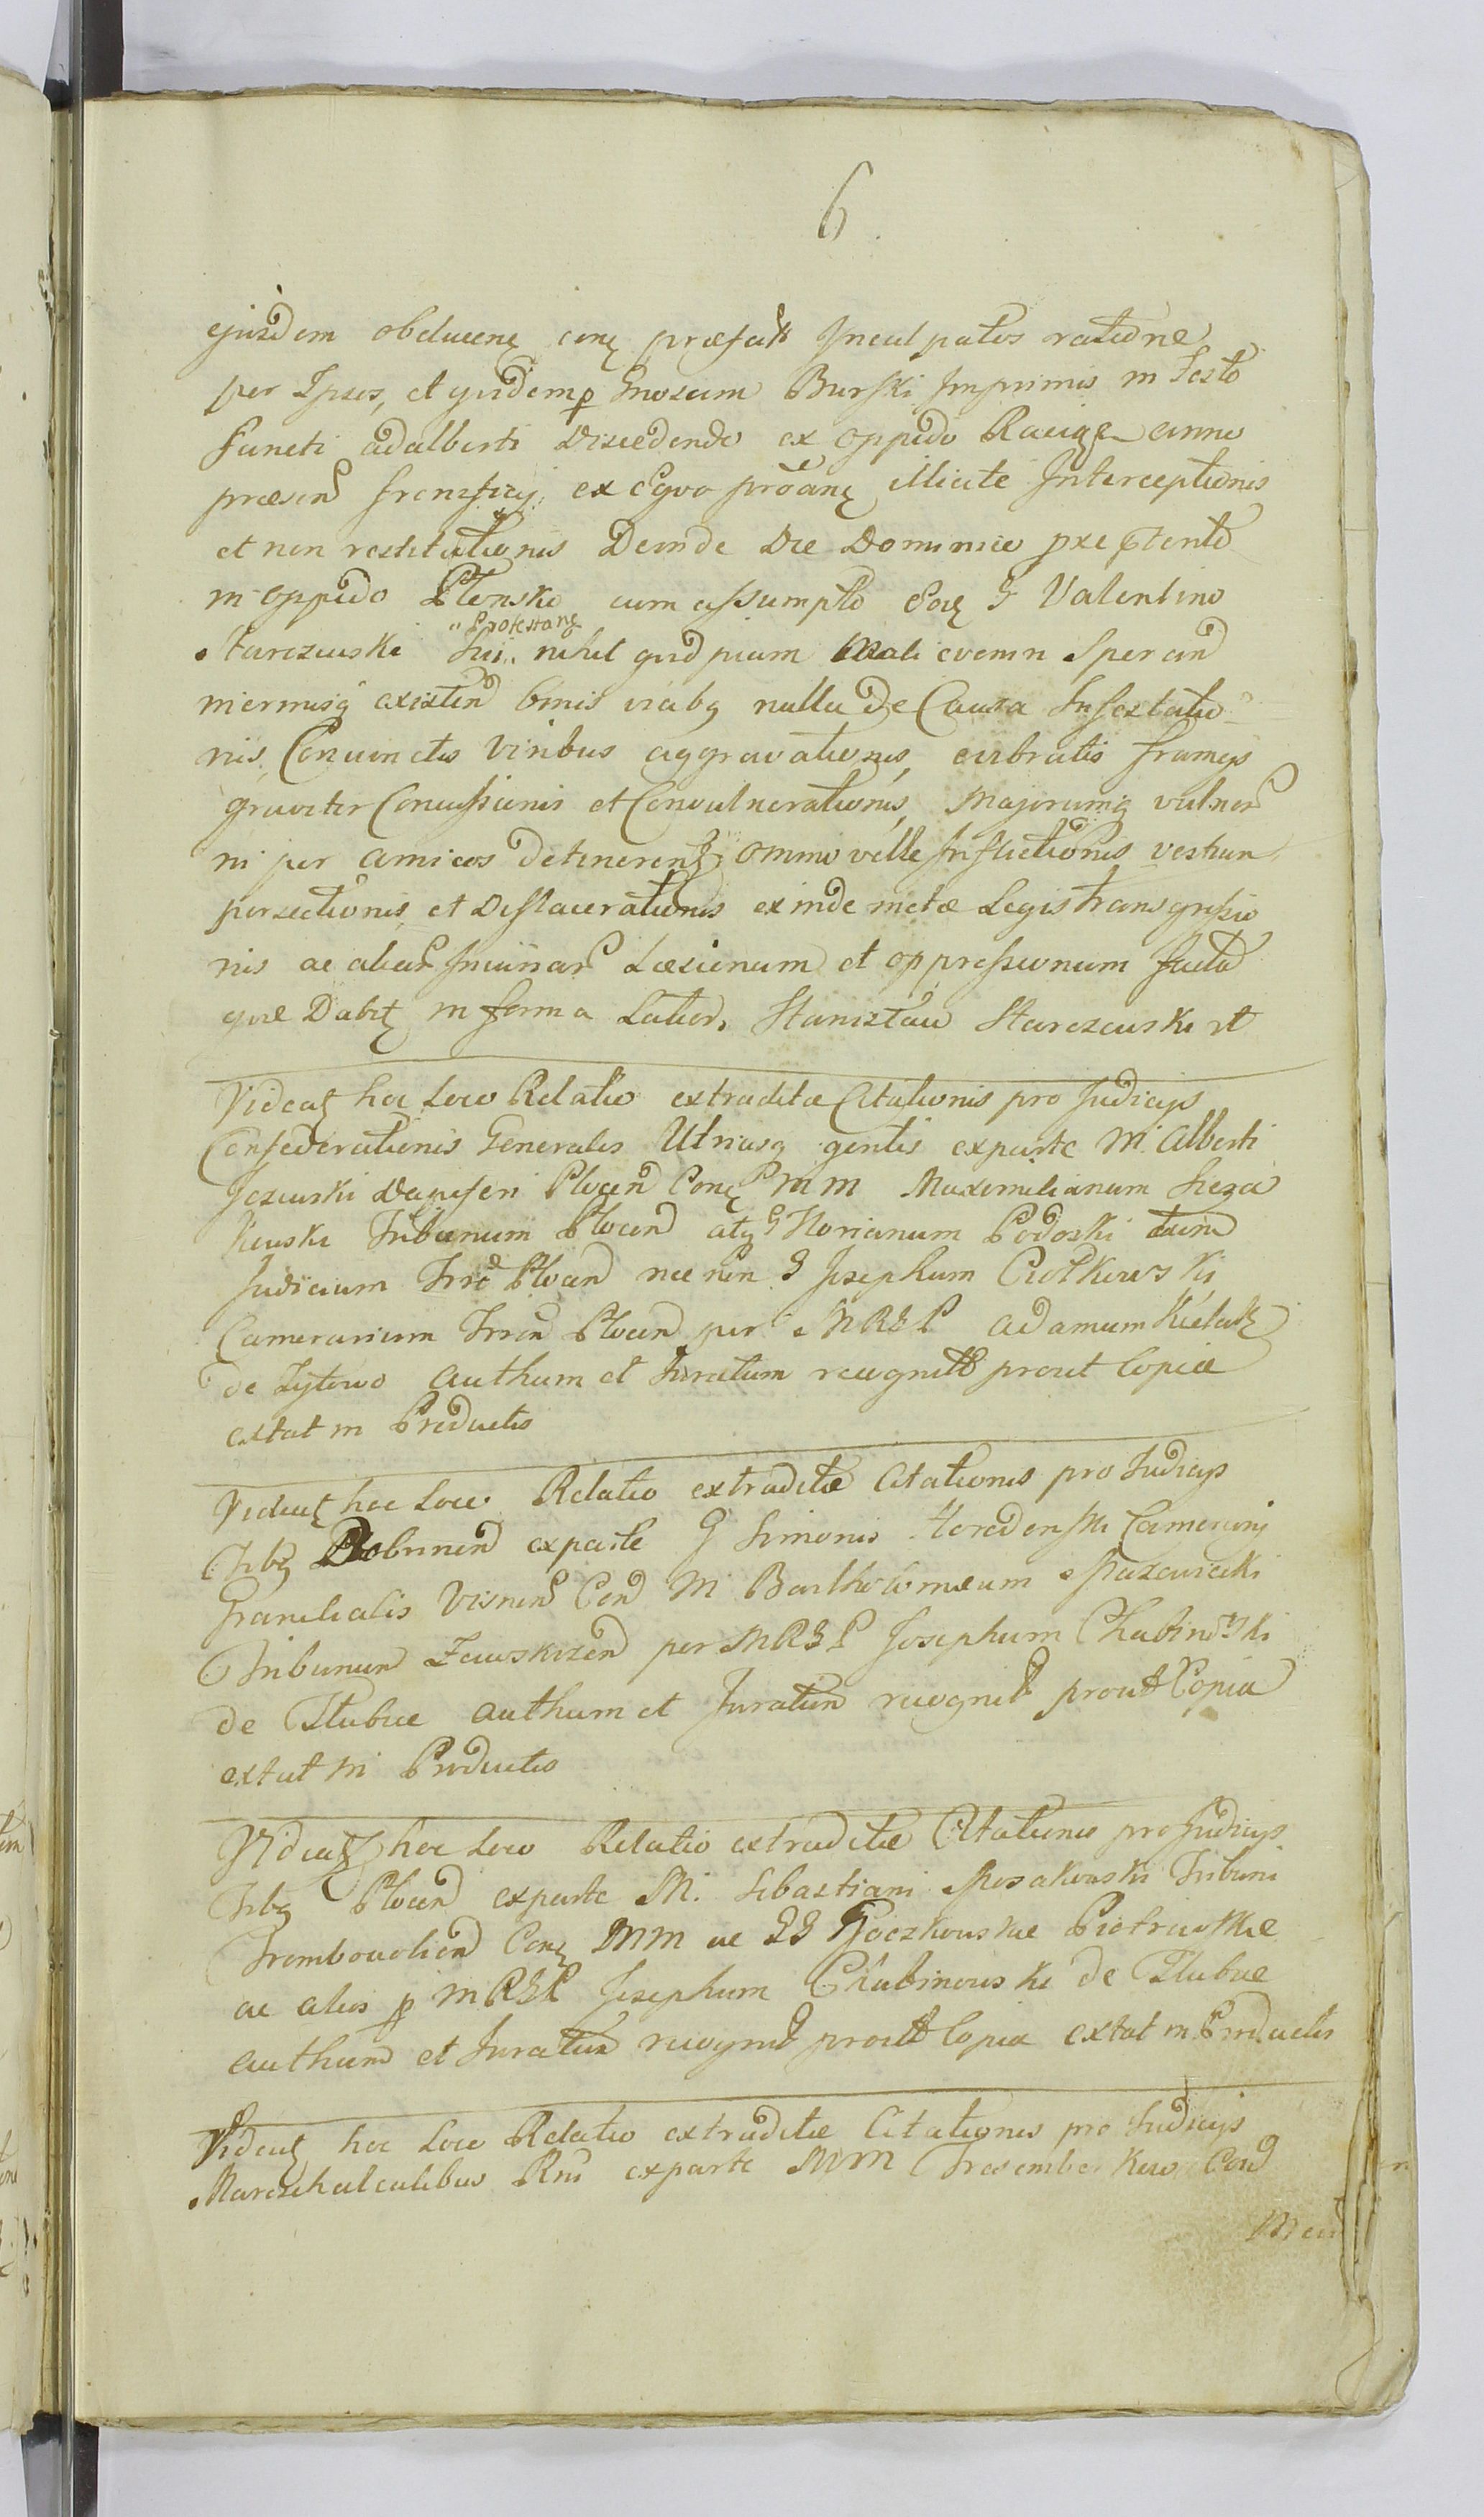 6.
ejusdem obducens cons præfatt Inculpatos ratione
per Ipsos, et quidem p Gnosum Burski Imprimis in Festo
Sancti adalberti discedendo ex oppido Raciąż anno
præsen ex eqvo illicite Interceptionis
et non restitutionis Deinde Die Dominico præterito
in oppido Płonsko cum assumpto G Valentino
Starczewski Sui Protestans nihil quid piam Mali evenin Speran
inermisq existen binis viabq nulla De Causa Infestatio
nis, Conjunctis viribus aggravationis, evibratis frameis
graviter Concussionis et Convulnerationis, Majorumq vulner
ni per amicos detineren omnino velle Inflictionis vestium
persectionis, et Dislacerationis exinde metæ Legis transgressio
nis ac aliar Iniuriar Læsionum et oppressionum facta
qvæ Dabit in forma Latior, Stanisław Starczewski
Videat hoc Loco Relatio extraditæ Citationis pro Judicijs
Confederationis Generalis Utriusq gentis exparte M. Alberti
Jezewski Dapiferi Plocen Cons MM Maximilianum
Tribunum Plocen atq G Florianum Podoski
Judicium Trris Plocen nec non G Josephum Ciołkowski
Camerarium Trren Plocen per MRGP adamum
de Zytowo authum et Juratum recognit prout Copia
extat in Productis
Videat hoc Loco Relatio extraditæ Citationis pro Judicijs
Trbq Dobrinen exparte G Simonis Camerarij
Granicialis Visnen Con M Bartholomæum
Tribunum Zawskrzen per MRGP Josephum Chabinowski
de Słubice authum et Juratum recognit prout Copia
extat in Productis
Videat hoc Loco Relatio extraditæ Citationis pro Judicijs
Trbq Plocen exparte M. Sebastiani Tribuni
Trembowolien Cons MM ac GG
ac alios p MRGP Josephum Chabinowski de Słubice
authum et Juratum recognit prout Copia extat in Productis
Videat hoc Loco Relatio extraditæ Citationis pro Judicijs
Marschalcalibus Rni exparte MM Con